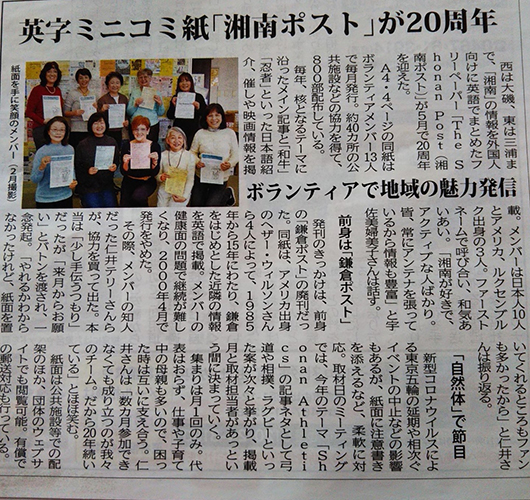 英字ミニコミ紙「湘南ポスト」が20周年
西は大磯、東は三浦ま
で、「湘南」の情報を外国人
向けに英語でまとめたフ
リーペーパー「The S
honan Post（湘
南ポスト）」が5月で20周年
を迎えた。
A4・4ページの同紙は
ボランティアメンバー13人
で毎月発行。約40カ所の公
共施設などの協力を得て、
800部配布している。
毎年、核となるテーマに
沿ったメイン記事と「和牛」
「忍者」といった日本語紹
介、催しや映画情報を掲
紙面を手に笑顔のメンバー（2月撮影）
ボランティアで地域の魅力発信
載。メンバーは日本人10人
とアメリカ、ルクセンブル
ク出身の3人。ファースト
ネームで呼び合い、和気あ
いあい。「湘南が好きで、
アクティブな人ばかり。
皆、常にアンテナを張って
いるから情報も豊富」と宇
佐美婦美子さんは話す。
前身は「鎌倉ポスト」
発刊のきっかけは、前身
の「鎌倉ポスト」の廃刊だっ
た。同紙は、アメリカ出身
のヘザー・ウィルソンさん
ら4人によって、1985
年から15年にわたり、鎌倉
をはじめとした近隣の情報
を英語で掲載。メンバーの
健康面の問題で継続が難し
くなり、2000年4月で
発行をやめた。
その際、メンバーの知人
だった仁井テリーさんら
が、協力を買って出た。本
当は「少し手伝うつもり」
だったが「来月からお願
い」とバトンを渡され、一
念発起。「やれるかわから
なかったけれど、紙面を置
いてくれるところもファン
も多かったから」と仁井さ
んは振り返る。
「自然体」で節目
新型コロナウイルスによ
る東京五輪の延期や相次ぐ
イベントの中止などの影響
もあるが、紙面に注意書き
を添えるなど、柔軟に対
応。取材日のミーティング
では、今年のテーマ「Sh
onan Athleti
cs」の記事ネタとして弓
道や相撲、ラグビーといっ
た案が次々と挙がり、掲載
月と取材担当者があっとい
う間に決まっていく。
集まりは月1回のみ。代
表はおらず、仕事や子育て
中の母親も多いので、困っ
た時は互いに支え合う。仁
井さんは「数カ月参加でき
なくても成り立つのが我々
のチーム。だから20年続い
ている」とほほ笑む。
紙面は公共施設等での配
架のほか、団体のウェブサ
イトでも閲覧可能。有償で
の郵送対応も行っている。